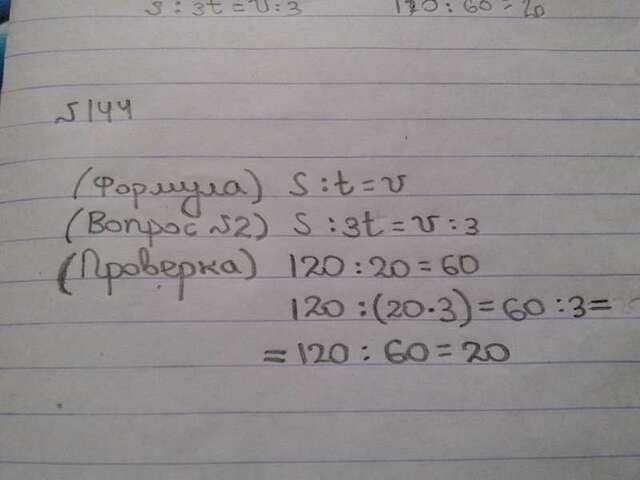 s : 3t = v : 3 120 : 60 = 20
№144
(Формула) S : t = v
(Вопрос №2) S : 3t = v : 3
(Проверка) 120 : 20 = 60
120 : (20 · 3) = 60 : 3 =
= 120 : 60 = 20